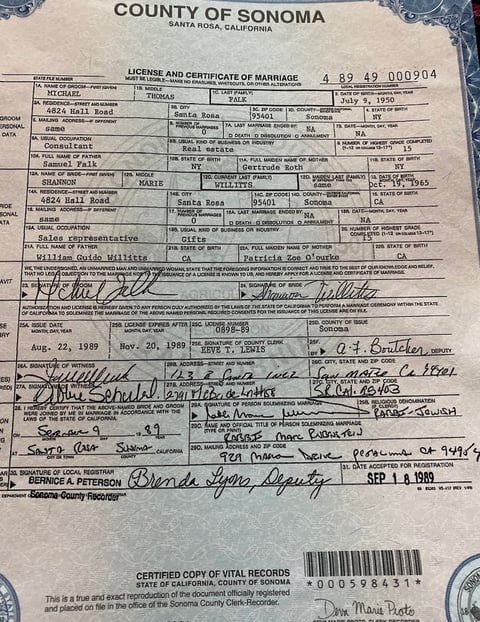 COUNTY OF SONOMA
SANTA ROSA, CALIFORNIA
LICENSE AND CERTIFICATE OF MARRIAGE
MUST BE LEGIBLE—MAKE NO ERASURES, WHITEOUTS, OR OTHER ALTERATIONS
4 89 49 000904
STATE FILE NUMBER
LOCAL REGISTRATION NUMBER
1A. NAME OF GROOM—FIRST (GIVEN) 1B. MIDDLE 1C. LAST (FAMILY) 2. DATE OF BIRTH—MONTH, DAY, YEAR
MICHAEL THOMAS FALK July 9, 1950
3A. RESIDENCE—STREET AND NUMBER 3B. CITY 3C. ZIP CODE 3D. COUNTY 4. STATE OF BIRTH
4824 Hall Road Santa Rosa 95401 Sonoma NY
5. MAILING ADDRESS—IF DIFFERENT 6. NUMBER OF PREVIOUS MARRIAGES 7A. LAST MARRIAGE ENDED BY: 7B. DATE—MONTH, DAY, YEAR
same 0 NA NA
DEATH DISSOLUTION ANNULMENT
8A. USUAL OCCUPATION 8B. USUAL KIND OF BUSINESS OR INDUSTRY 9. NUMBER OF HIGHEST GRADE COMPLETED
Consultant Real estate 15
10A. FULL NAME OF FATHER 10B. STATE OF BIRTH 11A. FULL MAIDEN NAME OF MOTHER 11B. STATE OF BIRTH
Samuel Falk NY Gertrude Roth NY
12A. NAME OF BRIDE—FIRST (GIVEN) 12B. MIDDLE 12C. CURRENT LAST (FAMILY) 12D. MAIDEN LAST 13. DATE OF BIRTH MONTH, DAY, YEAR
SHANNON MARIE WILLITTS same Oct. 19, 1965
14A. RESIDENCE—STREET AND NUMBER 14B. CITY 14C. ZIP CODE 14D. COUNTY 15. STATE OF BIRTH
4824 Hall Road Santa Rosa 95401 Sonoma CA
16. MAILING ADDRESS—IF DIFFERENT 17. NUMBER OF PREVIOUS MARRIAGES 18A. LAST MARRIAGE ENDED BY: 18B. DATE—MONTH, DAY, YEAR
same 0 NA NA
DEATH DISSOLUTION ANNULMENT
19A. USUAL OCCUPATION 19B. USUAL KIND OF BUSINESS OR INDUSTRY 20. NUMBER OF HIGHEST GRADE COMPLETED
Sales representative Gifts 15
21A. FULL NAME OF FATHER 21B. STATE OF BIRTH 22A. FULL MAIDEN NAME OF MOTHER 22B. STATE OF BIRTH
William Guido Willitts CA Patricia Zoe O'urke CA
WE, THE UNDERSIGNED, AN UNMARRIED MAN AND UNMARRIED WOMAN, STATE THAT THE FOREGOING INFORMATION IS CORRECT AND TRUE TO THE BEST OF OUR KNOWLEDGE AND BELIEF,
23. SIGNATURE OF GROOM 24. SIGNATURE OF BRIDE
Michael Falk Shannon Willitts
25A. ISSUE DATE MONTH, DAY, YEAR 25B. LICENSE EXPIRES AFTER MONTH, DAY, YEAR 25C. LICENSE NUMBER 25D. COUNTY OF ISSUE
Aug. 22, 1989 Nov. 20, 1989 0898-89 Sonoma
25E. SIGNATURE OF COUNTY CLERK 25F.
EEVE T. LEWIS BY A.F. Boutcher, DEPUTY
26A. SIGNATURE OF WITNESS 26B. ADDRESS—STREET AND NUMBER 26C. CITY, STATE AND ZIP CODE
San Mateo Ca 94401
27A. SIGNATURE OF WITNESS 27B. ADDRESS—STREET AND NUMBER 27C. CITY, STATE AND ZIP CODE
S.R. Cal. 95403
28. I HEREBY CERTIFY THAT THE ABOVE-NAMED BRIDE AND GROOM WERE JOINED BY ME IN MARRIAGE IN ACCORDANCE WITH THE LAWS OF THE STATE OF CALIFORNIA.
29A. SIGNATURE OF PERSON SOLEMNIZING MARRIAGE 29B. RELIGIOUS DENOMINATION
RABBI - JEWISH
29C. NAME AND OFFICIAL TITLE OF PERSON SOLEMNIZING MARRIAGE (TYPE OR PRINT)
RABBI MARC RUBENSTEIN
ON 9 19 89
AT SANTA ROSA SONOMA, CALIFORNIA
29D. MAILING ADDRESS AND ZIP CODE
929 Maria Drive Petaluma CA
30. SIGNATURE OF LOCAL REGISTRAR 31. DATE ACCEPTED FOR REGISTRATION
BERNICE A. PETERSON Brenda Lyons, Deputy SEP 18 1989
Sonoma County Recorder
CERTIFIED COPY OF VITAL RECORDS
STATE OF CALIFORNIA, COUNTY OF SONOMA
*000598431*
This is a true and exact reproduction of the document officially registered
and placed on file in the office of the Sonoma County Clerk-Recorder.
Deva Marie Proto